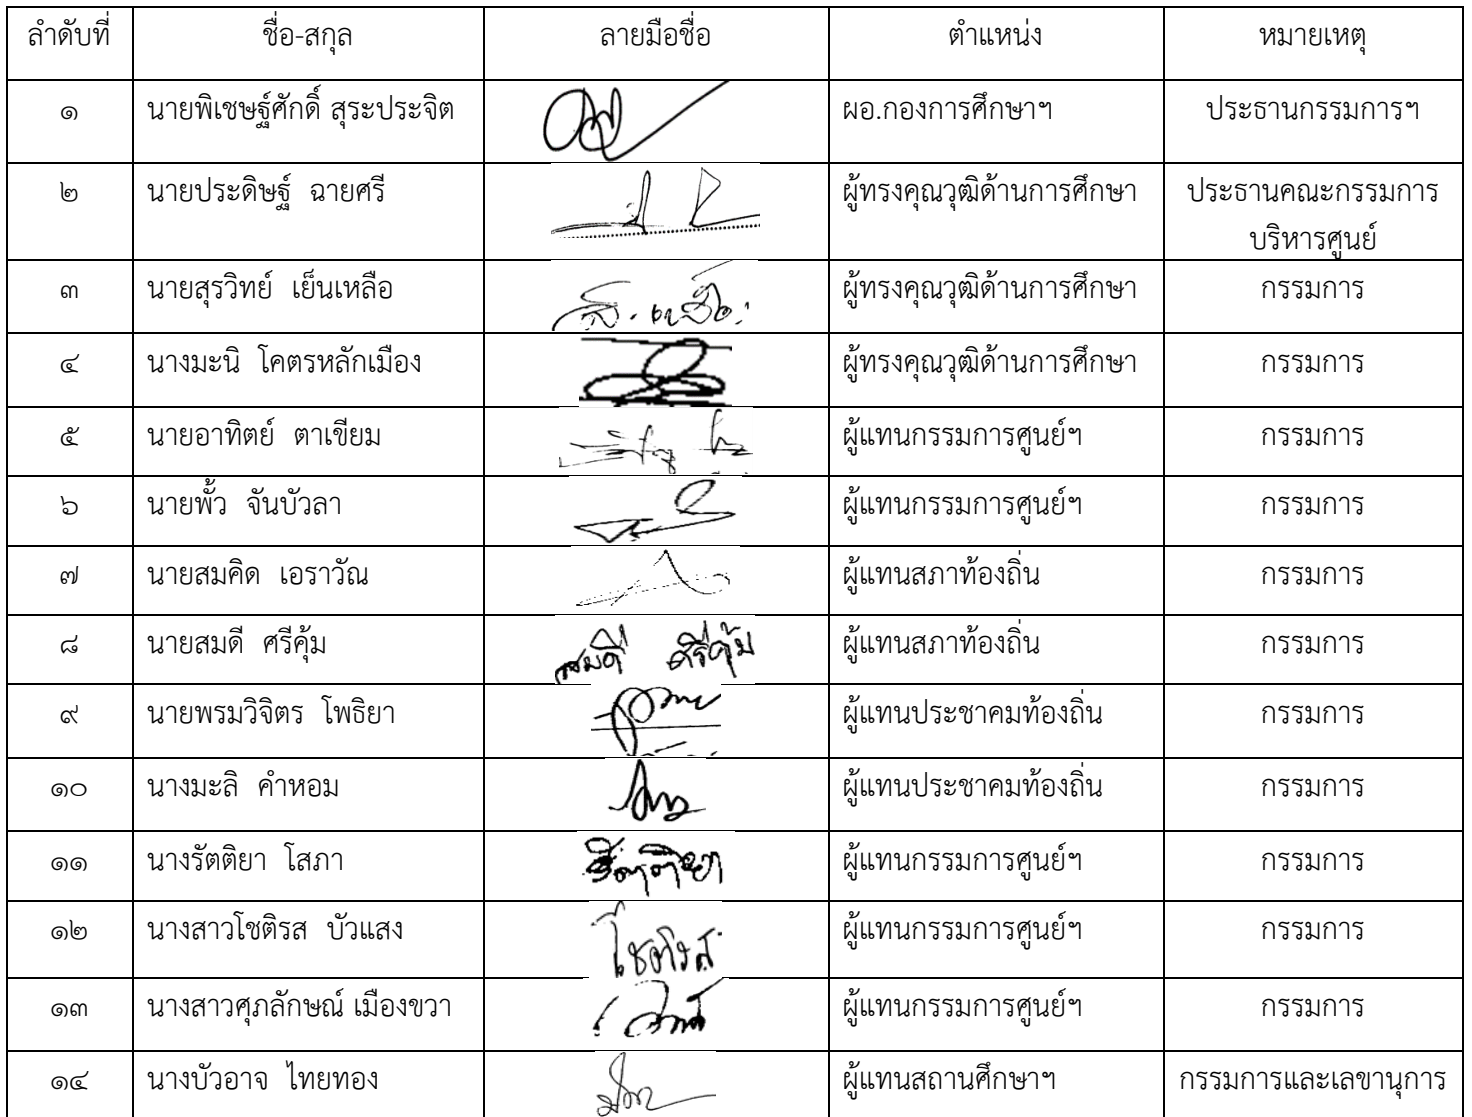 ลำดับที่ ชื่อ-สกุล ลายมือชื่อ ตำแหน่ง หมายเหตุ
๑ นายพิเชษฐ์ศักดิ์ สุระประจิต ผอ.กองการศึกษาฯ ประธานกรรมการฯ
๒ นายประดิษฐ์ ฉายศรี ผู้ทรงคุณวุฒิด้านการศึกษา ประธานคณะกรรมการ
บริหารศูนย์
๓ นายสุรวิทย์ เย็นเหลือ ผู้ทรงคุณวุฒิด้านการศึกษา กรรมการ
๔ นางมะนิ โคตรหลักเมือง ผู้ทรงคุณวุฒิด้านการศึกษา กรรมการ
๕ นายอาทิตย์ ตาเขียม ผู้แทนกรรมการศูนย์ฯ กรรมการ
๖ นายพั้ว จันบัวลา ผู้แทนกรรมการศูนย์ฯ กรรมการ
๗ นายสมคิด เอราวัณ ผู้แทนสภาท้องถิ่น กรรมการ
๘ นายสมดี ศรีคุ้ม สมดี ศรีคุ้ม ผู้แทนสภาท้องถิ่น กรรมการ
๙ นายพรมวิจิตร โพธิยา ผู้แทนประชาคมท้องถิ่น กรรมการ
๑๐ นางมะลิ คำหอม ผู้แทนประชาคมท้องถิ่น กรรมการ
๑๑ นางรัตติยา โสภา รัตติยา ผู้แทนกรรมการศูนย์ฯ กรรมการ
๑๒ นางสาวโชติรส บัวแสง โชติรส ผู้แทนกรรมการศูนย์ฯ กรรมการ
๑๓ นางสาวศุภลักษณ์ เมืองขวา ผู้แทนกรรมการศูนย์ฯ กรรมการ
๑๔ นางบัวอาจ ไทยทอง ผู้แทนสถานศึกษาฯ กรรมการและเลขานุการ